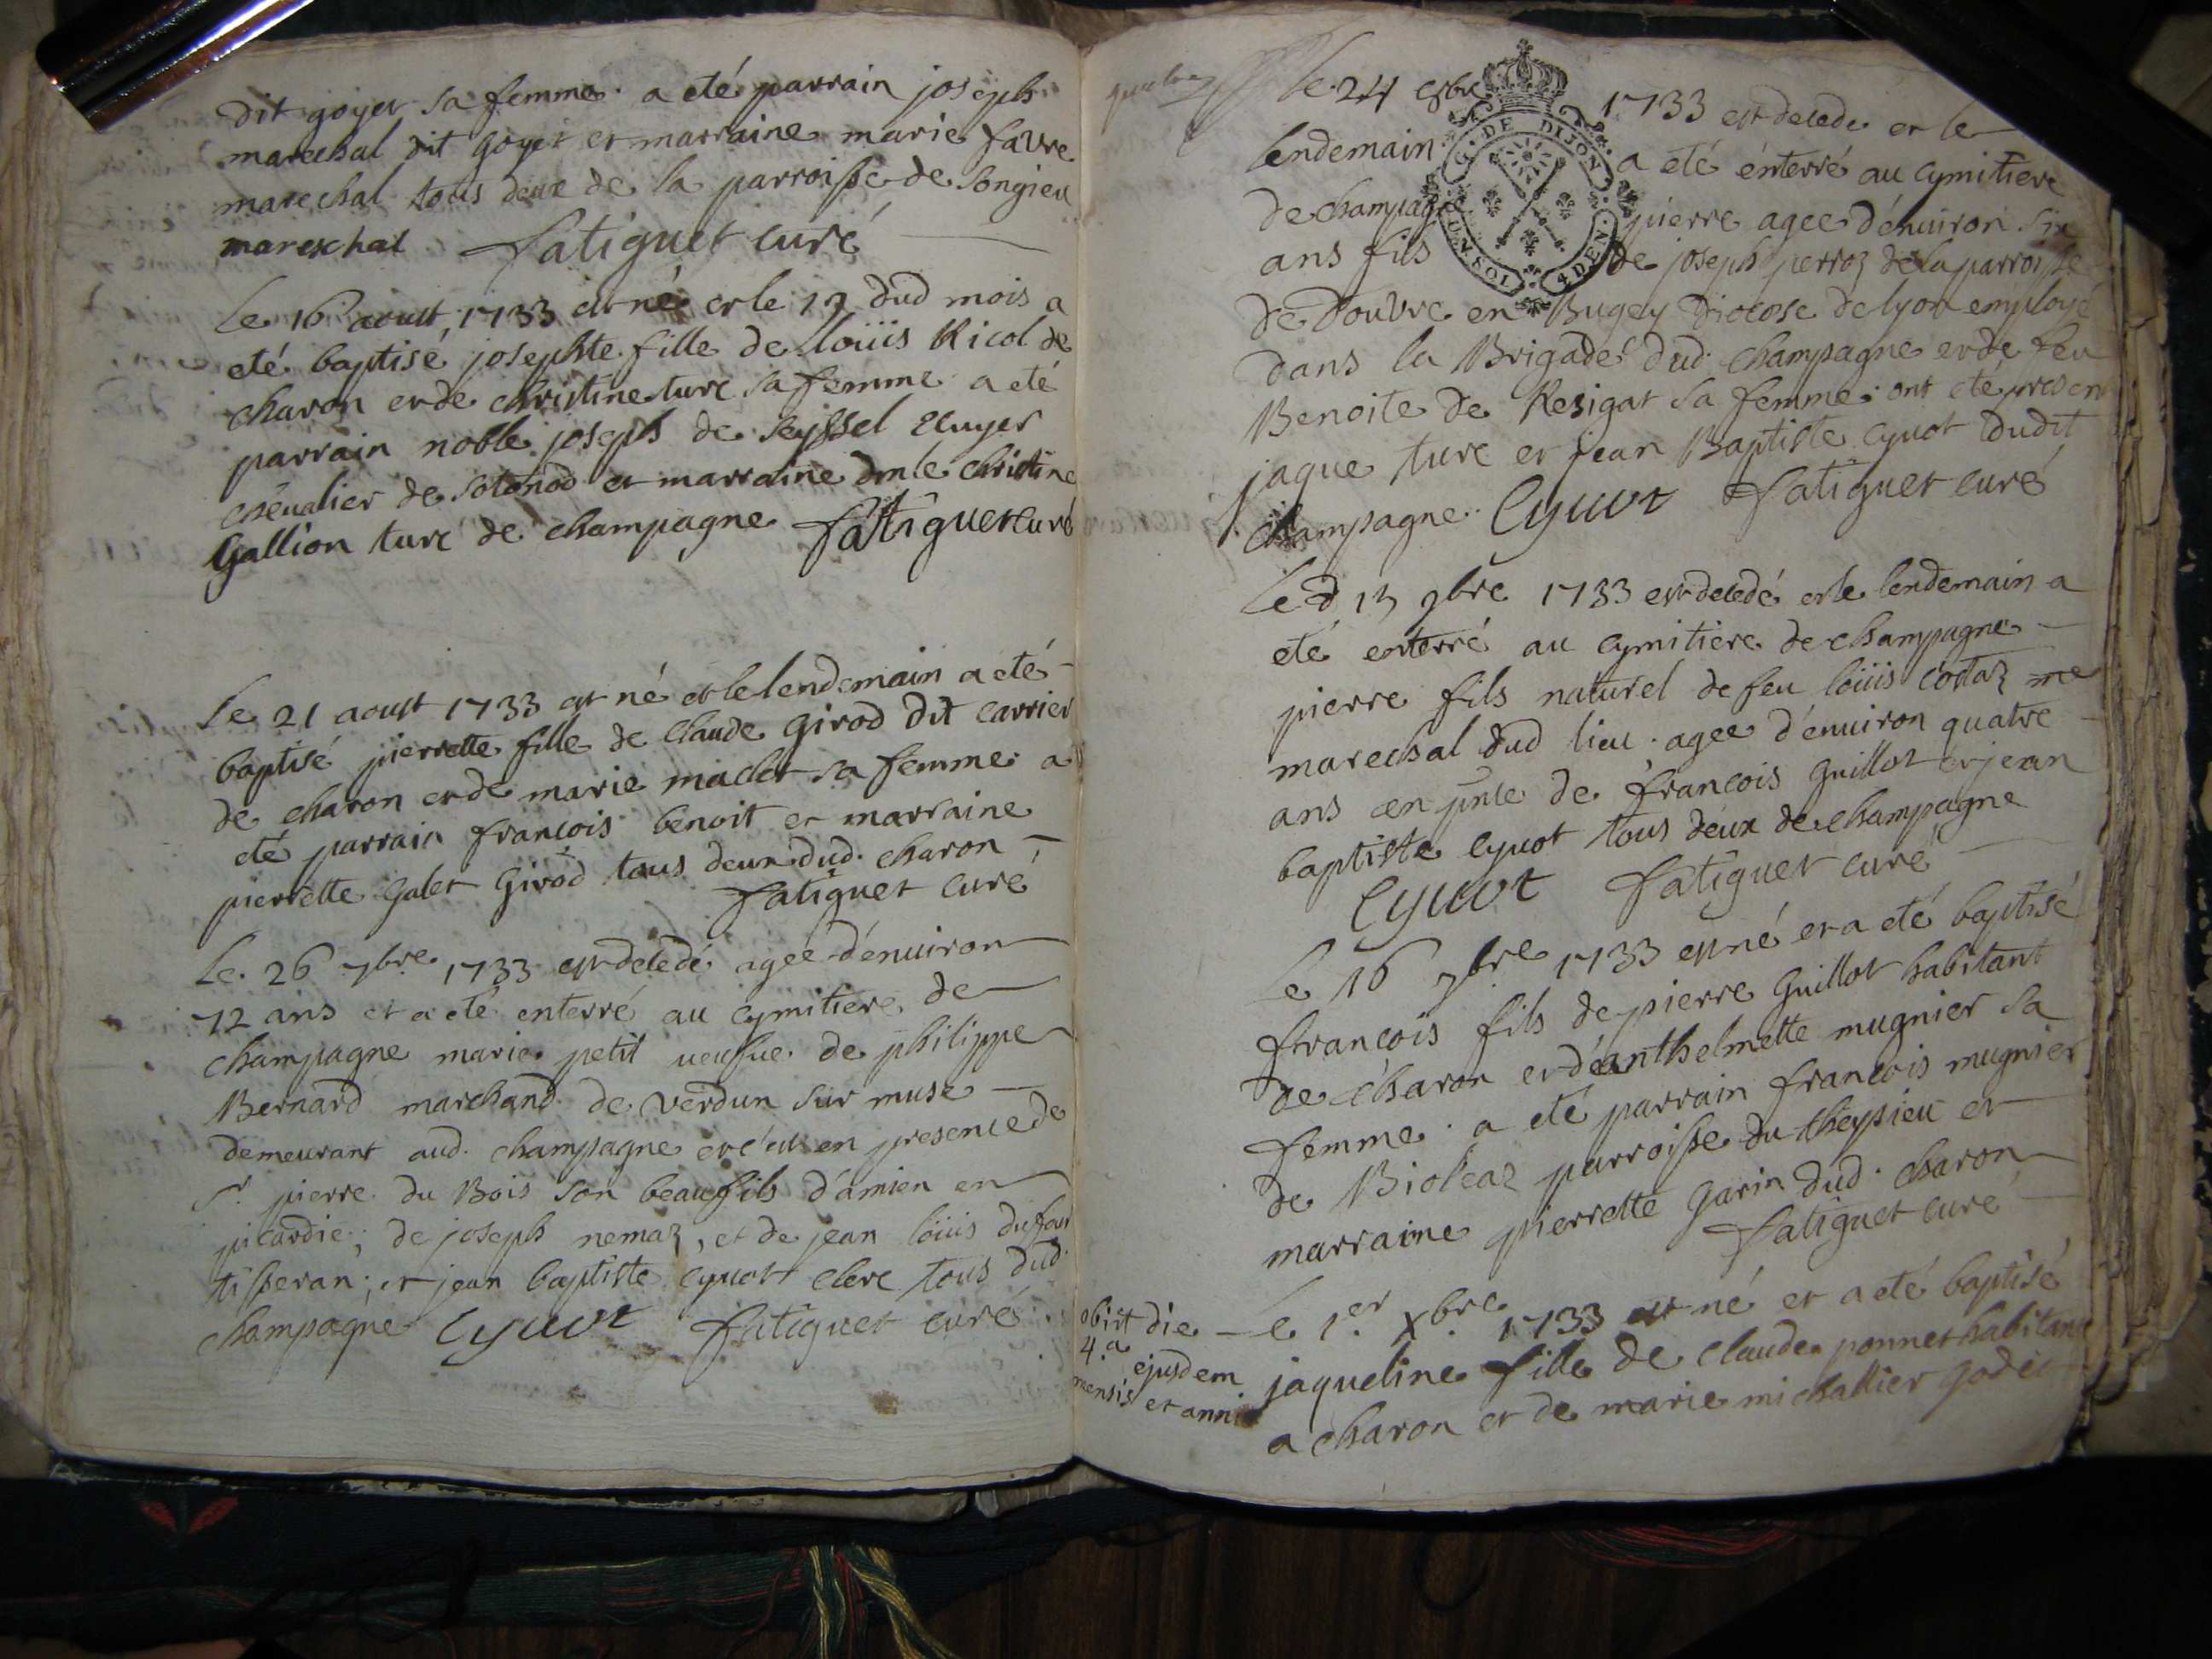 dit goyet sa femme. a eté parrain joseph
marechal dit goyet et marraine marie favre
marechal tous deux de la parroisse de songieu
mareschal fatiguet curé
Le 16 aoust 1733 est né et le 17 dud mois a
eté baptisé josephte fille de loüis Ricol de
charon et de christine turc sa femme a eté
parrain noble joseph de seyssel ecuyer
chevalier de sotonod et marraine dmle christine
Gallion turc de champagne fatiguet curé
Le 21 aoust 1733 est né et le lendemain a eté
baptisé pierrette fille de claude Girod dit carrier
de charon et de marie maclet sa femme a
eté parrain françois benoit et marraine
pierrette Galet Girod tous deux dud. charon
fatiguet curé
Le 26 7bre 1733 est decedé agée d'enuiron
72 ans et a eté enterré au cymitiere de
champagne marie petit ueufue de philippe
Bernard marchand de verdun sur muse
demeurant aud. champagne et c'est en presence de
Sr pierre du Bois son beaufils d'amien en
picardie; de joseph nemaz, et de jean loüis dufour
tisseran; et jean baptiste cyuot clerc tous dud.
champagne Cyuot fatiguet curé
le 24 8bre 1733 est decede et le
lendemain a eté énterré au cymitiere
de champagne pierre agee d'enuiron six
ans fils de joseph perroz de la parroisse
de Douvre en Bugey Diocose de lyon employé
dans la Brigade dud. champagne et de feu
Benoite de Resigat sa femme. ont eté presen
jaque turc et jean Baptiste cyuot dudit
champagne. Cyuot fatiguet curé
G. DE DIJON. UNSOL. 4 DEN.
Le 13 9bre 1733 est decedé et le lendemain a
eté enterré au cymitiere de champagne
pierre fils naturel de feu loüis costaz me
marechal dud lieu. agee d'enuiron quatre
ans en pnce de francois Guillot et jean
baptiste cyuot tous deux de champagne
Cyuot fatiguet curé
Le 16 9bre 1733 est né et a eté baptisé
françois fils de pierre Guillot habitant
de charon et d'anthelmette mugnier sa
femme. a eté parrain francois mugnier
de Bioleaz parroisse du theysieu et
marraine pierrette Garin dud. charon
fatiguet curé
obiit die
4.a
ejusdem
mensis et anni
le 1.er Xbre 1733 est né et a eté baptisé
jaqueline fille de claude ponnet habitant
a charon et de marie michallier